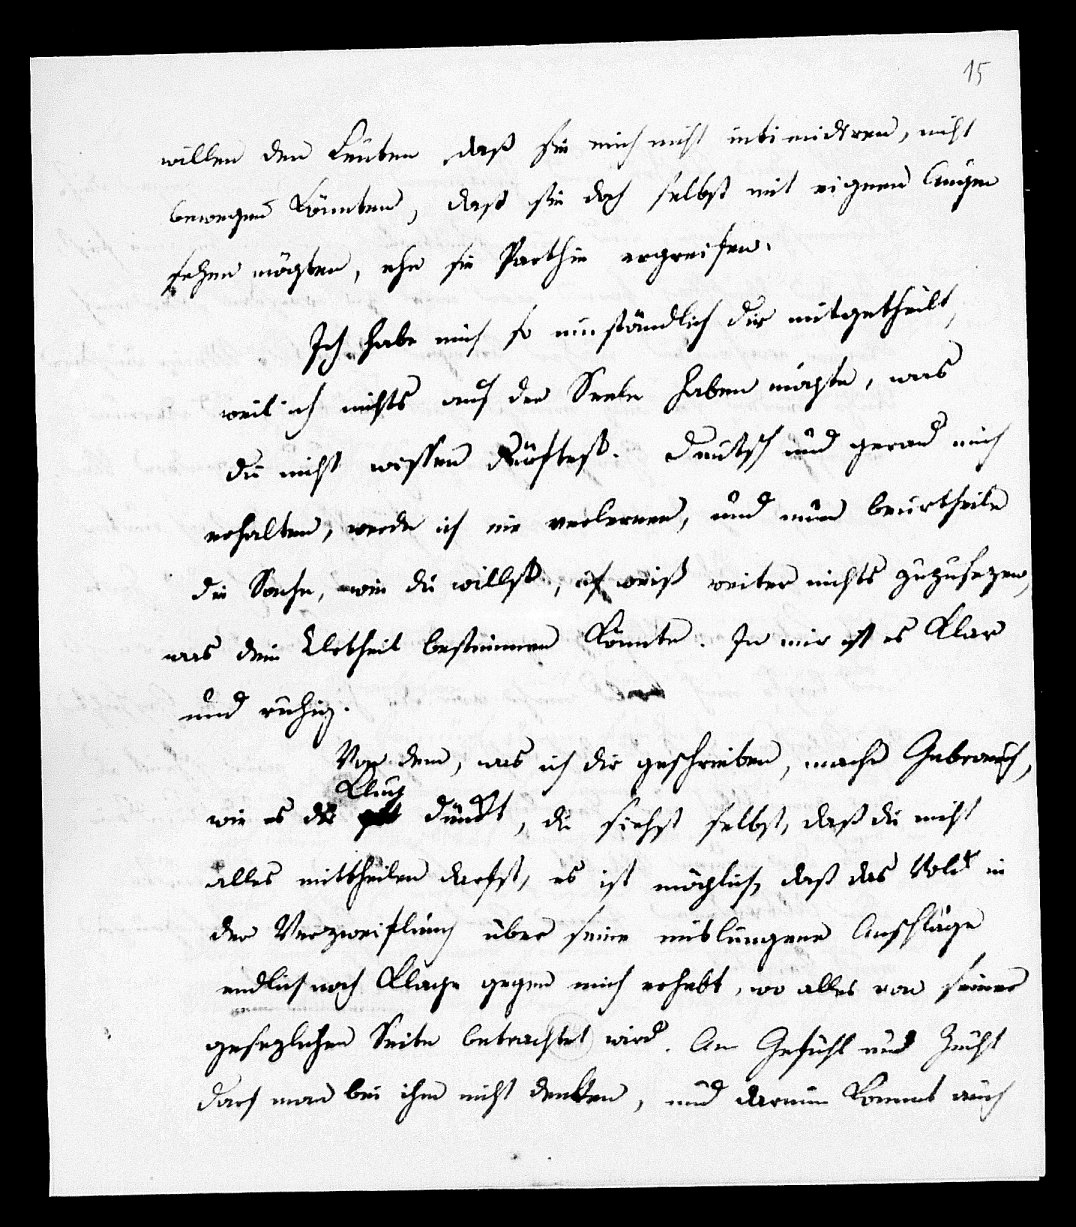 15
willen den Leuten, daß sie mich nicht intimidiren, nicht
bewegen könnten, daß sie doch selbst mit eignen Augen
sehen mögten, ehe sie Parthie ergreifen.
Ich habe mich so umständlich dir mitgetheilt,
weil ich nichts auf der Seele haben möchte, was
du nicht wissen dürftest. Deutsch und gerad mich
erhalten, werde ich nie verlernen, und nun beurtheile
die Sache, wie du willst, ich weiß weiter nichts zuzusezen,
was dein Urtheil bestimmen könnte. In mir ist es klar
und ruhig.
Von dem, was ich dir geschrieben, mache Gebrauch,
klug
wie es dir dünkt, du siehst selbst, daß du nicht
alles mittheilen darfst, es ist möglich, daß das Volk in
der Verzweiflung über seine mislungene Anschläge
endlich noch Klage gegen mich erhebt, wo alles von seiner
gesezlichen Seite betrachtet wird. An Gefühl und Zucht
darf man bei ihm nicht denken, und darum kommt auch